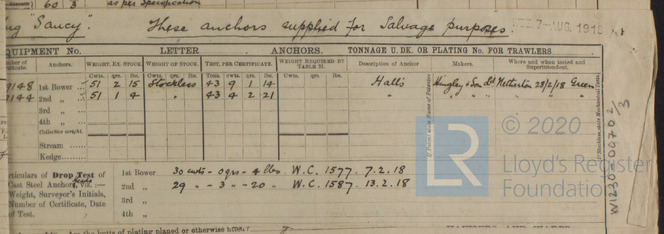 60 3 as per Specification
ug "Saucy". These anchors supplied for Salvage purposes. REC 7-AUG. 1918
QUIPMENT No. LETTER ANCHORS. TONNAGE U. DK. OR PLATING No. FOR TRAWLERS
Anchors. WEIGHT, EX. STOCK WEIGHT OF STOCK. TEST, PER CERTIFICATE. WEIGHT REQUIRED BY TABLE 31. Description of Anchor Makers. Where and when tested and Superintendent.
Cwts. qrs. lbs. Cwts. qrs. lbs. Tons. cwts. qrs. lbs. Cwts. qrs. lbs.
9148 1st Bower 51 2 15 Stockless 43 9 1 14 Halls Hingley & Son Ld Netherton 28/2/18 Green
9144 2nd „ 51 1 4 " 43 4 2 21 " " " " "
3rd „
4th „
Collective weight.
Stream
Kedge
articulars of Drop Test of Cast Steel Anchor Heads, viz.:— Weight, Surveyor's Initials, Number of Certificate, Date of Test.
1st Bower 30 cwts - 0 qrs - 4 lbs. W.C. 1577. 7.2.18
2nd „ 29 " - 3 " - 20 " W.C. 1587. 13.2.18
3rd „
4th „
Are the butts of plating planed or otherwise
W1230-0070 2/3
© 2020
LR
Lloyd's Register
Foundation